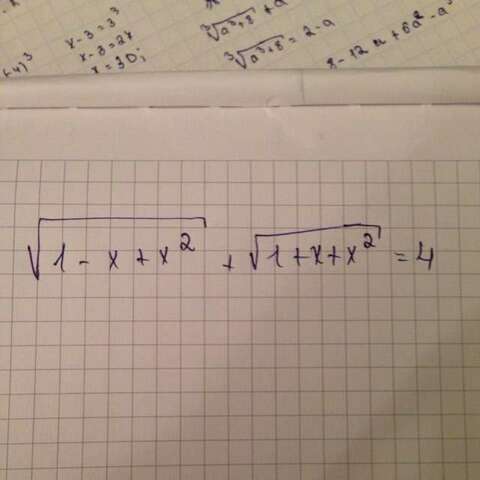 x-3=3³
x-3=27
x=30;
∛(a³+8) + a
∛(a³+8) = 2-a
8-12a+6a²-a³
√(1-x+x²) + √(1+x+x²) = 4